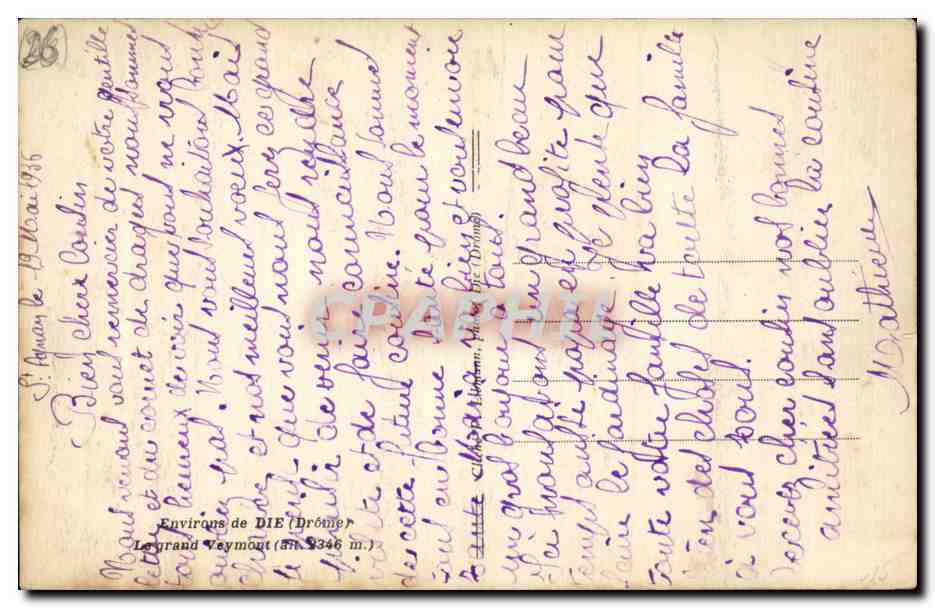 26
St Agnan le 19 Mai 1936
Bien chers Cousin
Nous venons vous remercier de votre gentille
lettre et du cornet de dragées nous sommes
tous heureux de voir que vous ne nous
oubliez pas. Nous vous souhaitons bonne
chance et nos meilleurs voeux. Mais
je pense que vous nous ferez ce grand
plaisir de venir nous rendre
visite et de faire connaissance
de cette petite cousine. Nous sommes
tous en bonne santé pour le moment
bien et vous envoie
un gros bonjour à tous.
Ici nous avons un grand beau
temps aussi papa en profite pour
faire le jardinage. Je pense que
toute votre famille va bien
bien des choses de toute la famille
à vous tous.
Recevez cher cousin nos bonnes
amitiées sans oublier la cousine
Mathieu
Environs de DIE (Drôme)
Le grand Veymont (alt. 2346 m.)
(Drôme)
CPARAMA
15